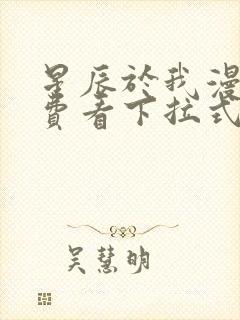 星辰於我漫
費看下拉式
吴慧明